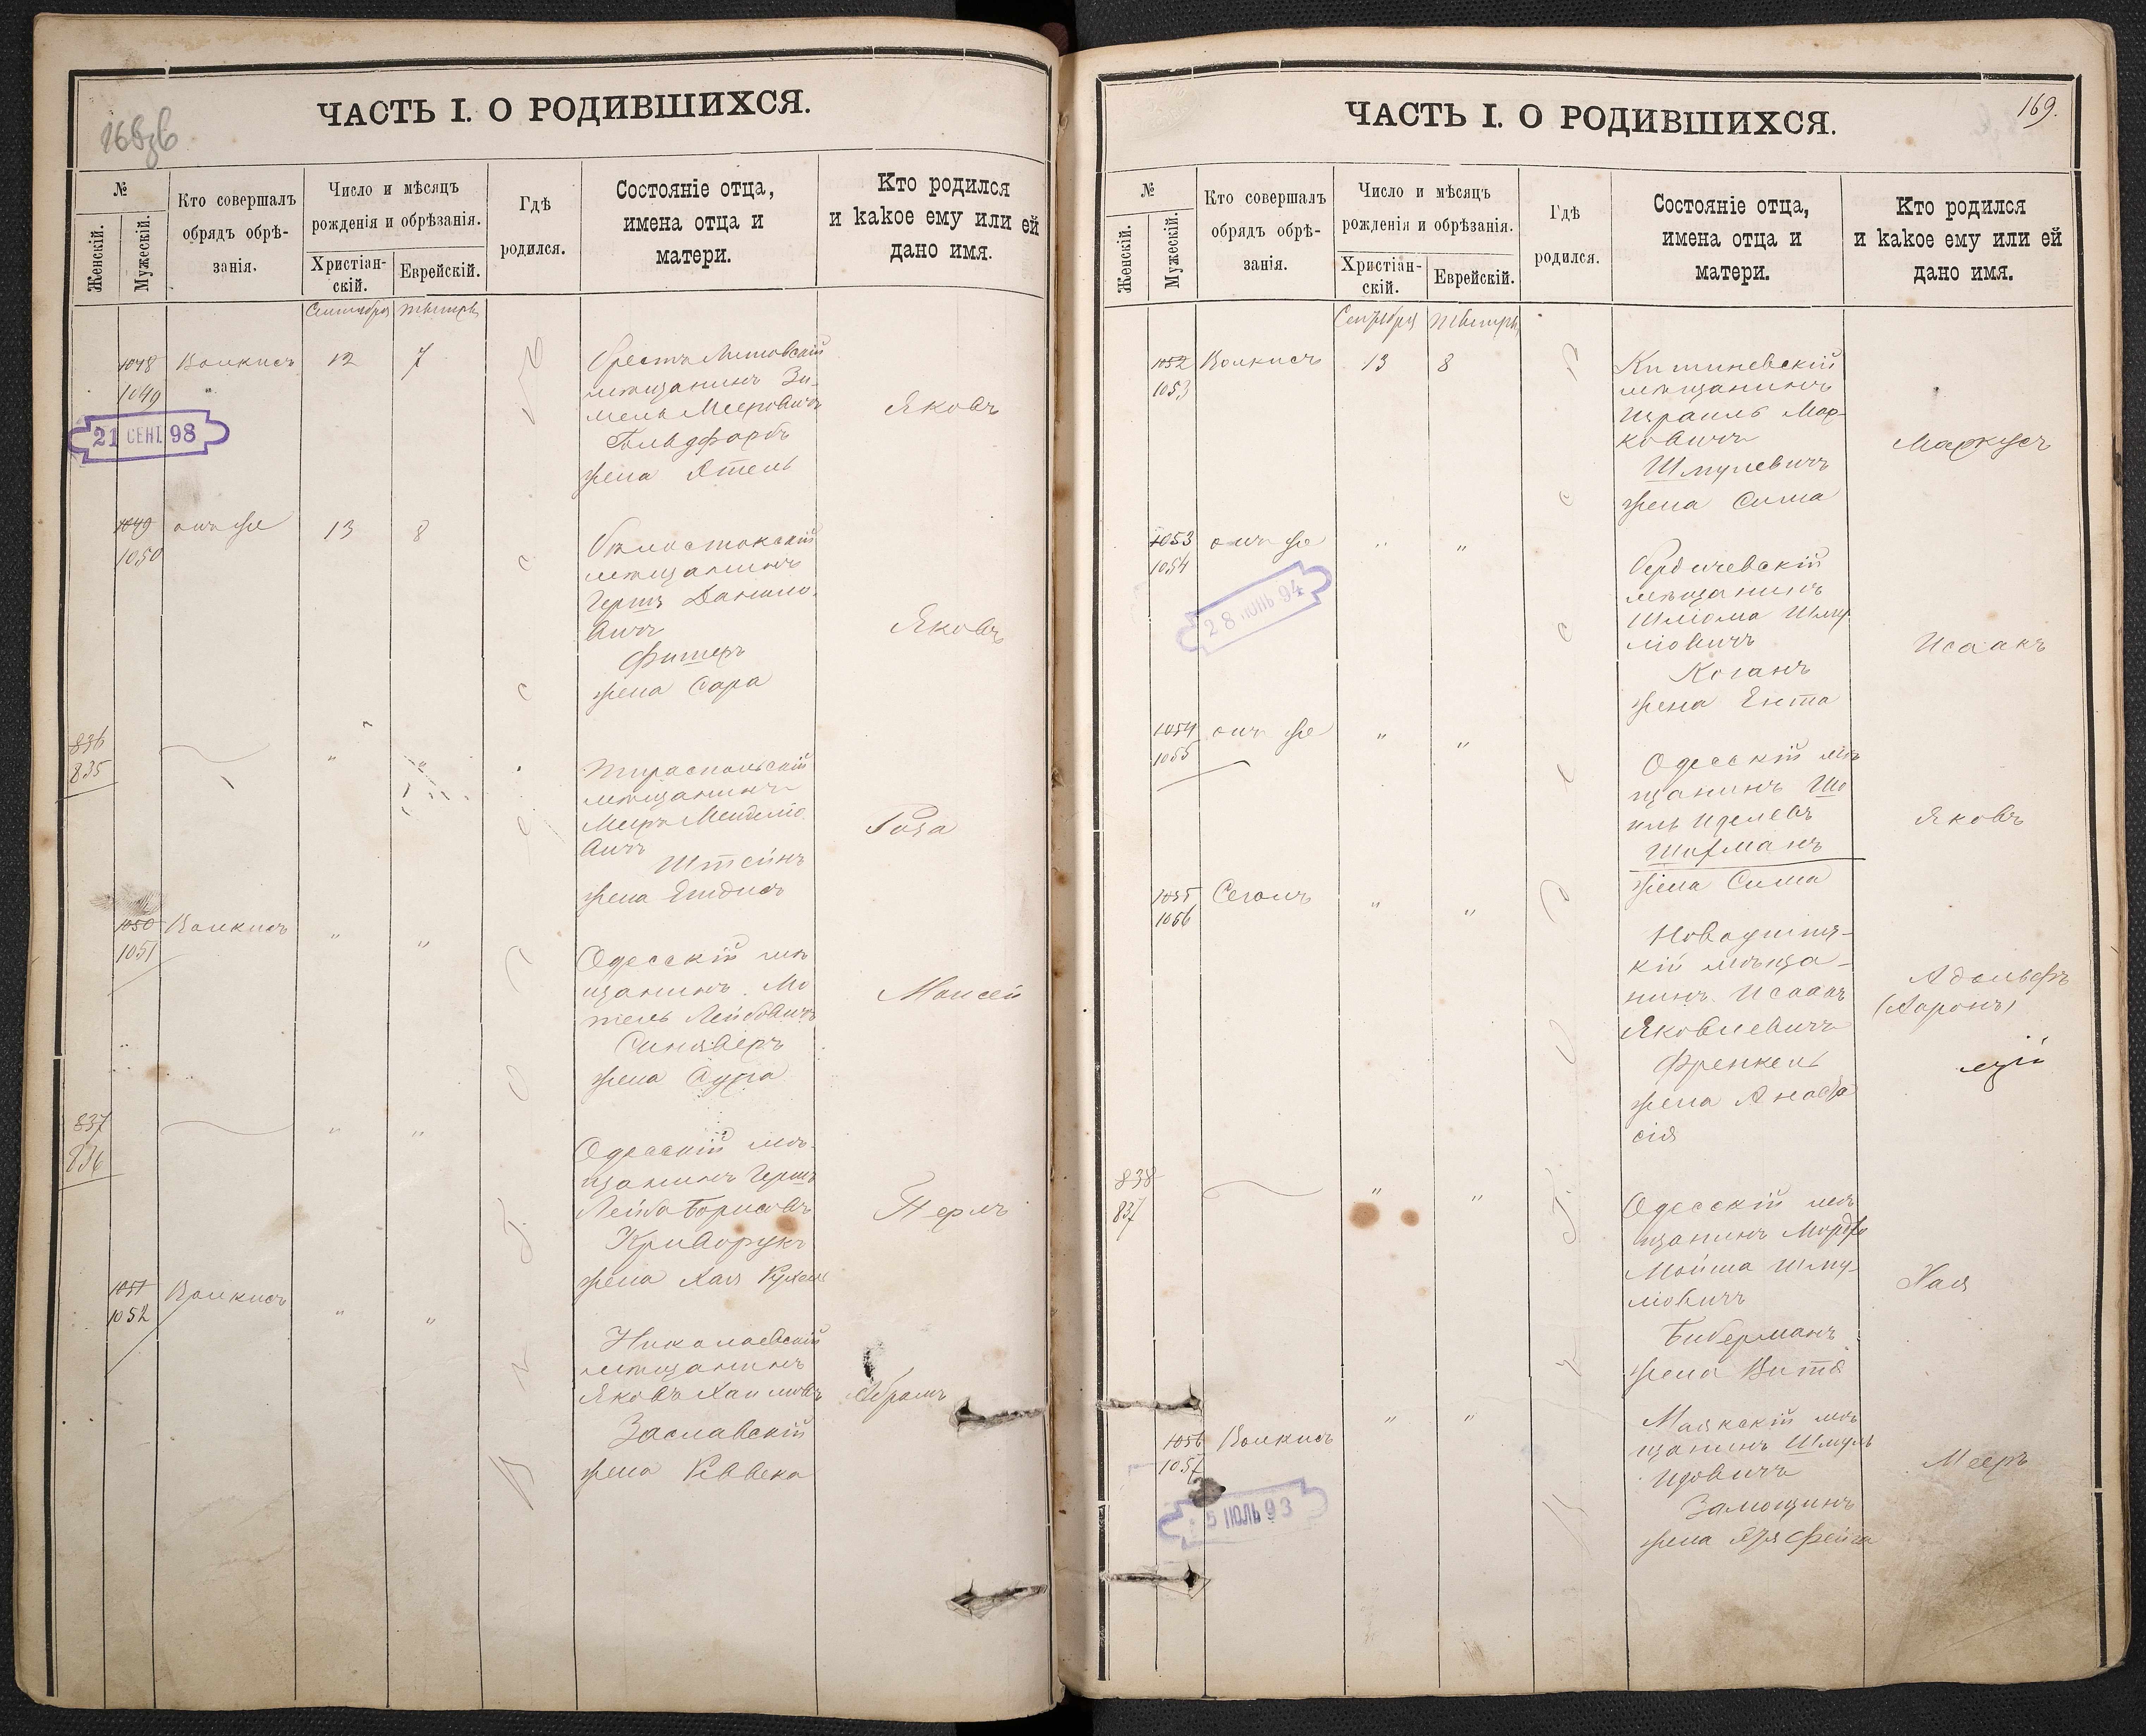 168об
ЧАСТЬ I. О РОДИВШИХСЯ.
№
Женскій.
Мужескій.
Кто совершалъ
обрядъ обрѣ-
занія.
Число и мѣсяцъ
рожденія и обрѣзанія.
Христіан-
скій.
Еврейскій.
Гдѣ
родился.
Состояніе отца,
имена отца и
матери.
Кто родился
и какое ему или ей
дано имя.
Сентября Тышры
1048 Волкисъ 12 7
1049
21 СЕНТ 98
Брестъ Литовскій
мѣщанинъ Зи-
мель Мееровичъ
Гольдфарбъ
жена Этель
Яковъ
1049 онъ же 13 8
1050
Бѣлостокскій
мѣщанинъ
Гершъ Данило-
вичъ
Фишеръ
жена Сара
Яковъ
836
835
" "
Тираспольскій
мѣщанинъ
Меиръ Менделіо
вичъ
Штейнъ
жена
Роза
1050 Волкисъ " "
1051
Одесскій мѣ
щанинъ Мо
тель Лейбовичъ
Синяверъ
жена Сура
Моисей
837
836
" "
Одесскій мѣ-
щанинъ Гершъ
Лейба Борисовъ
Криворукъ
жена Хая Рухель
Перль
1051 Волкисъ " "
1052
Николаевскій
мѣщанинъ
Яковъ Хаимовъ
Заславскій
жена Ривека
Абрамъ
169.
ЧАСТЬ I. О РОДИВШИХСЯ.
№
Женскій.
Мужескій.
Кто совершалъ
обрядъ обрѣ-
занія.
Число и мѣсяцъ
рожденія и обрѣзанія.
Христіан-
скій.
Еврейскій.
Гдѣ
родился.
Состояніе отца,
имена отца и
матери.
Кто родился
и какое ему или ей
дано имя.
Сентября Тышры
1052 Волкисъ 13 8
1053
Кишиневскій
мѣщанинъ
Израиль Мар-
ковичъ
Шмулевичъ
жена Сима
Маркусъ
1053 онъ же " "
1054
28 ИЮНЬ 94
Бердичевскій
мѣщанинъ
Шліома Шму
ліовичъ
Коганъ
жена Ента
Исаакъ
1054 онъ же " "
1055
Одесскій мѣ
щанинъ Шо
иль Иделевъ
Шифманъ
жена Сима
Яковъ
1055 Сегалъ " "
1056
кій мѣща-
нинъ Исаакъ
Яковлевичъ
Френкель
жена Анаста
сія
Адольфъ
(Ааронъ)
838
837
" "
Одесскій мѣ
щанинъ Мордко
Мойша Шму-
ліовичъ
Биберманъ
жена Витя
Хая
1056 Волкисъ " "
1057
5 ИЮЛЬ 93
Маякскій мѣ
щанинъ Шмуль
Идовичъ
Замощинъ
жена Фейга
Мееръ